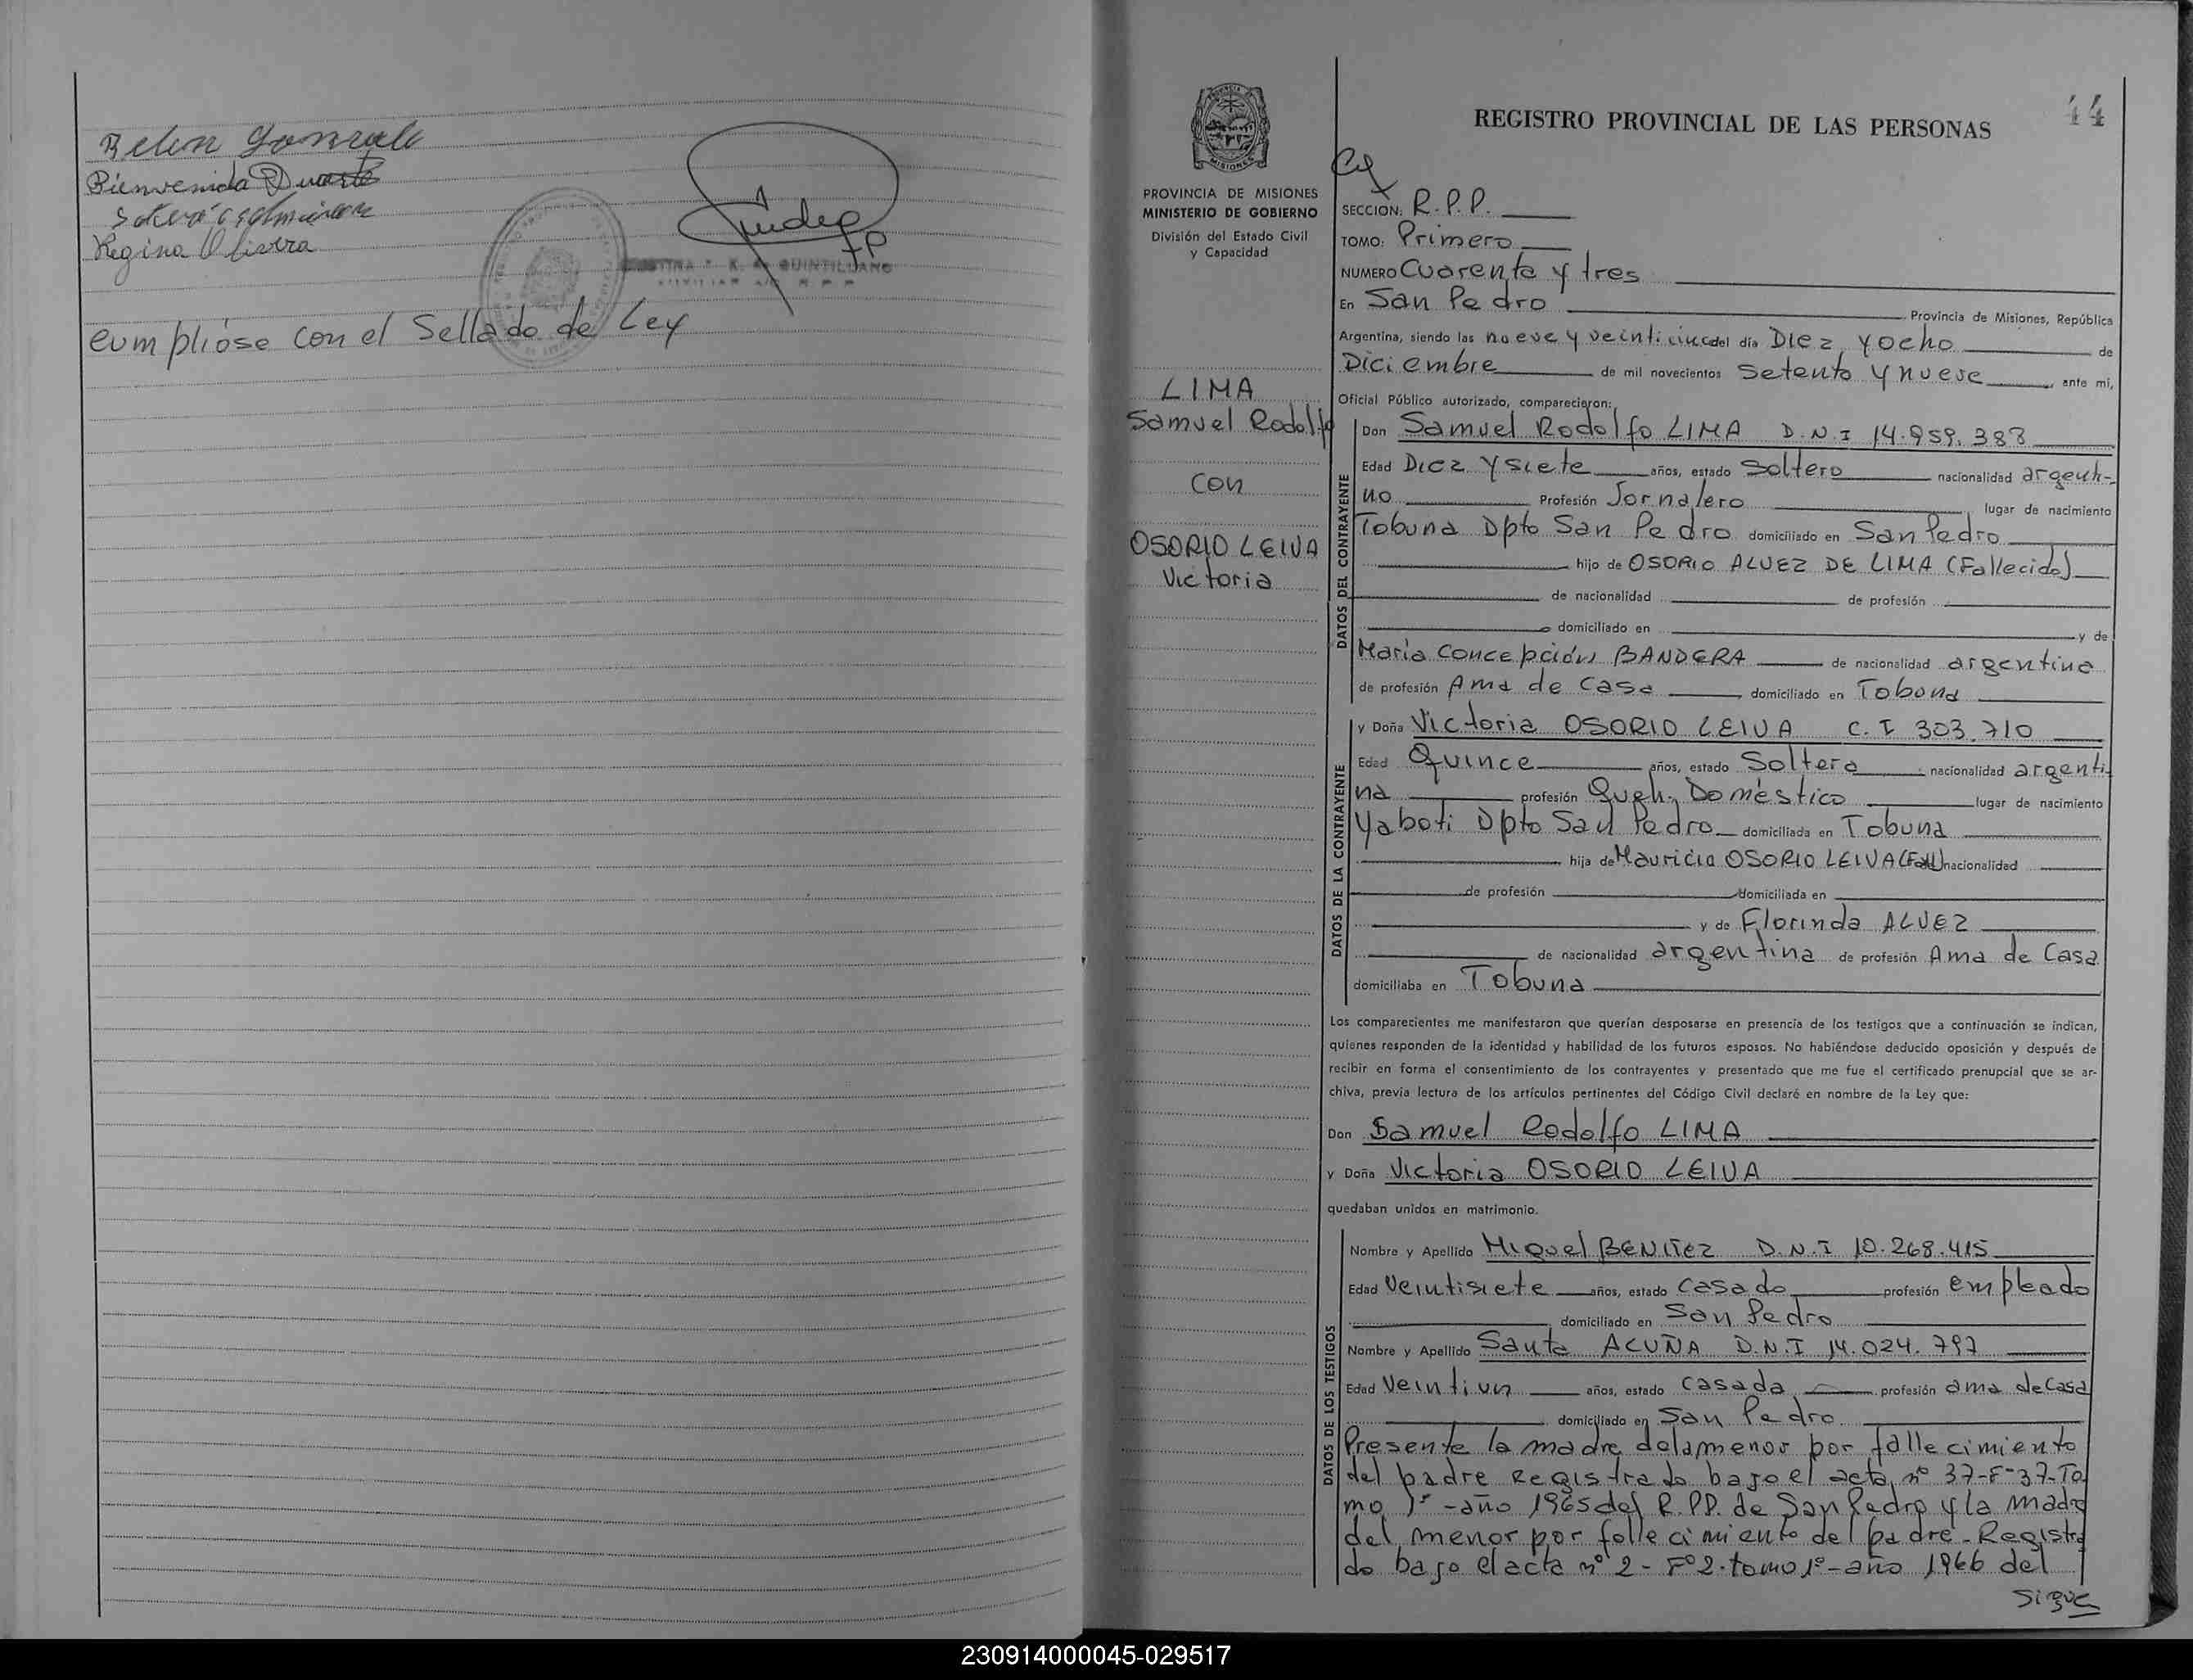 Belen Gonzale
Bienvenida Duarte
Regina Olivera
QUINTILLANO
cumplióse con el Sellado de Ley
44
REGISTRO PROVINCIAL DE LAS PERSONAS
PROVINCIA DE MISIONES
MINISTERIO DE GOBIERNO
División del Estado Civil
y Capacidad
SECCION: R.P.P.
TOMO: Primero
NUMERO Cuarenta y tres
En San Pedro
Provincia de Misiones, República
Argentina, siendo las nueve y veinticinco del día Diez y ocho de
Diciembre de mil novecientos Setenta y nueve, ante mí,
Oficial Público autorizado, comparecieron:
LIMA
Samuel Rodolfo
con
OSORIO LEIVA
Victoria
DATOS DEL CONTRAYENTE
Don Samuel Rodolfo LIMA D.N.I 14.959.383
Edad Diez y siete años, estado Soltero nacionalidad argenti-
no Profesión Jornalero lugar de nacimiento
Tobuna Dpto San Pedro domiciliado en San Pedro
hijo de OSORIO ALVEZ DE LIMA (Fallecido)
de nacionalidad de profesión
domiciliado en y de
María Concepción BANDERA de nacionalidad argentina
de profesión Ama de Casa domiciliado en Tobuna
DATOS DE LA CONTRAYENTE
y Doña Victoria OSORIO LEIVA C.I 303.710
Edad Quince años, estado Soltera nacionalidad argenti
na profesión Queh. Doméstico lugar de nacimiento
Yaboti Dpto San Pedro domiciliada en Tobuna
hija de Mauricio OSORIO LEIVA (Fall) nacionalidad
de profesión domiciliada en
y de Florinda ALVEZ
de nacionalidad argentina de profesión Ama de Casa
domiciliaba en Tobuna
Los comparecientes me manifestaron que querían desposarse en presencia de los testigos que a continuación se indican,
quienes responden de la identidad y habilidad de los futuros esposos. No habiéndose deducido oposición y después de
recibir en forma el consentimiento de los contrayentes y presentado que me fue el certificado prenupcial que se ar-
chiva, previa lectura de los artículos pertinentes del Código Civil declaré en nombre de la Ley que:
Don Samuel Rodolfo LIMA
y Doña Victoria OSORIO LEIVA
quedaban unidos en matrimonio.
DATOS DE LOS TESTIGOS
Nombre y Apellido Miguel BENITEZ D.N.I 10.268.415
Edad Veintisiete años, estado Casado profesión empleado
domiciliado en San Pedro
Nombre y Apellido Santa ACUÑA D.N.I 14.024.797
Edad Veintiun años, estado casada profesión ama de Casa
domiciliado en San Pedro
Presente la madre dela menor por fallecimiento
del padre Registrado bajo el acta nº 37-Fº37-To
mo 1º -año 1965 del R.P.P. de San Pedro y la madre
del menor por fallecimiento del padre - Registra
do bajo el acta nº 2 - Fº 2. tomo 1º - año 1966 del
Sigue
230914000045-029517